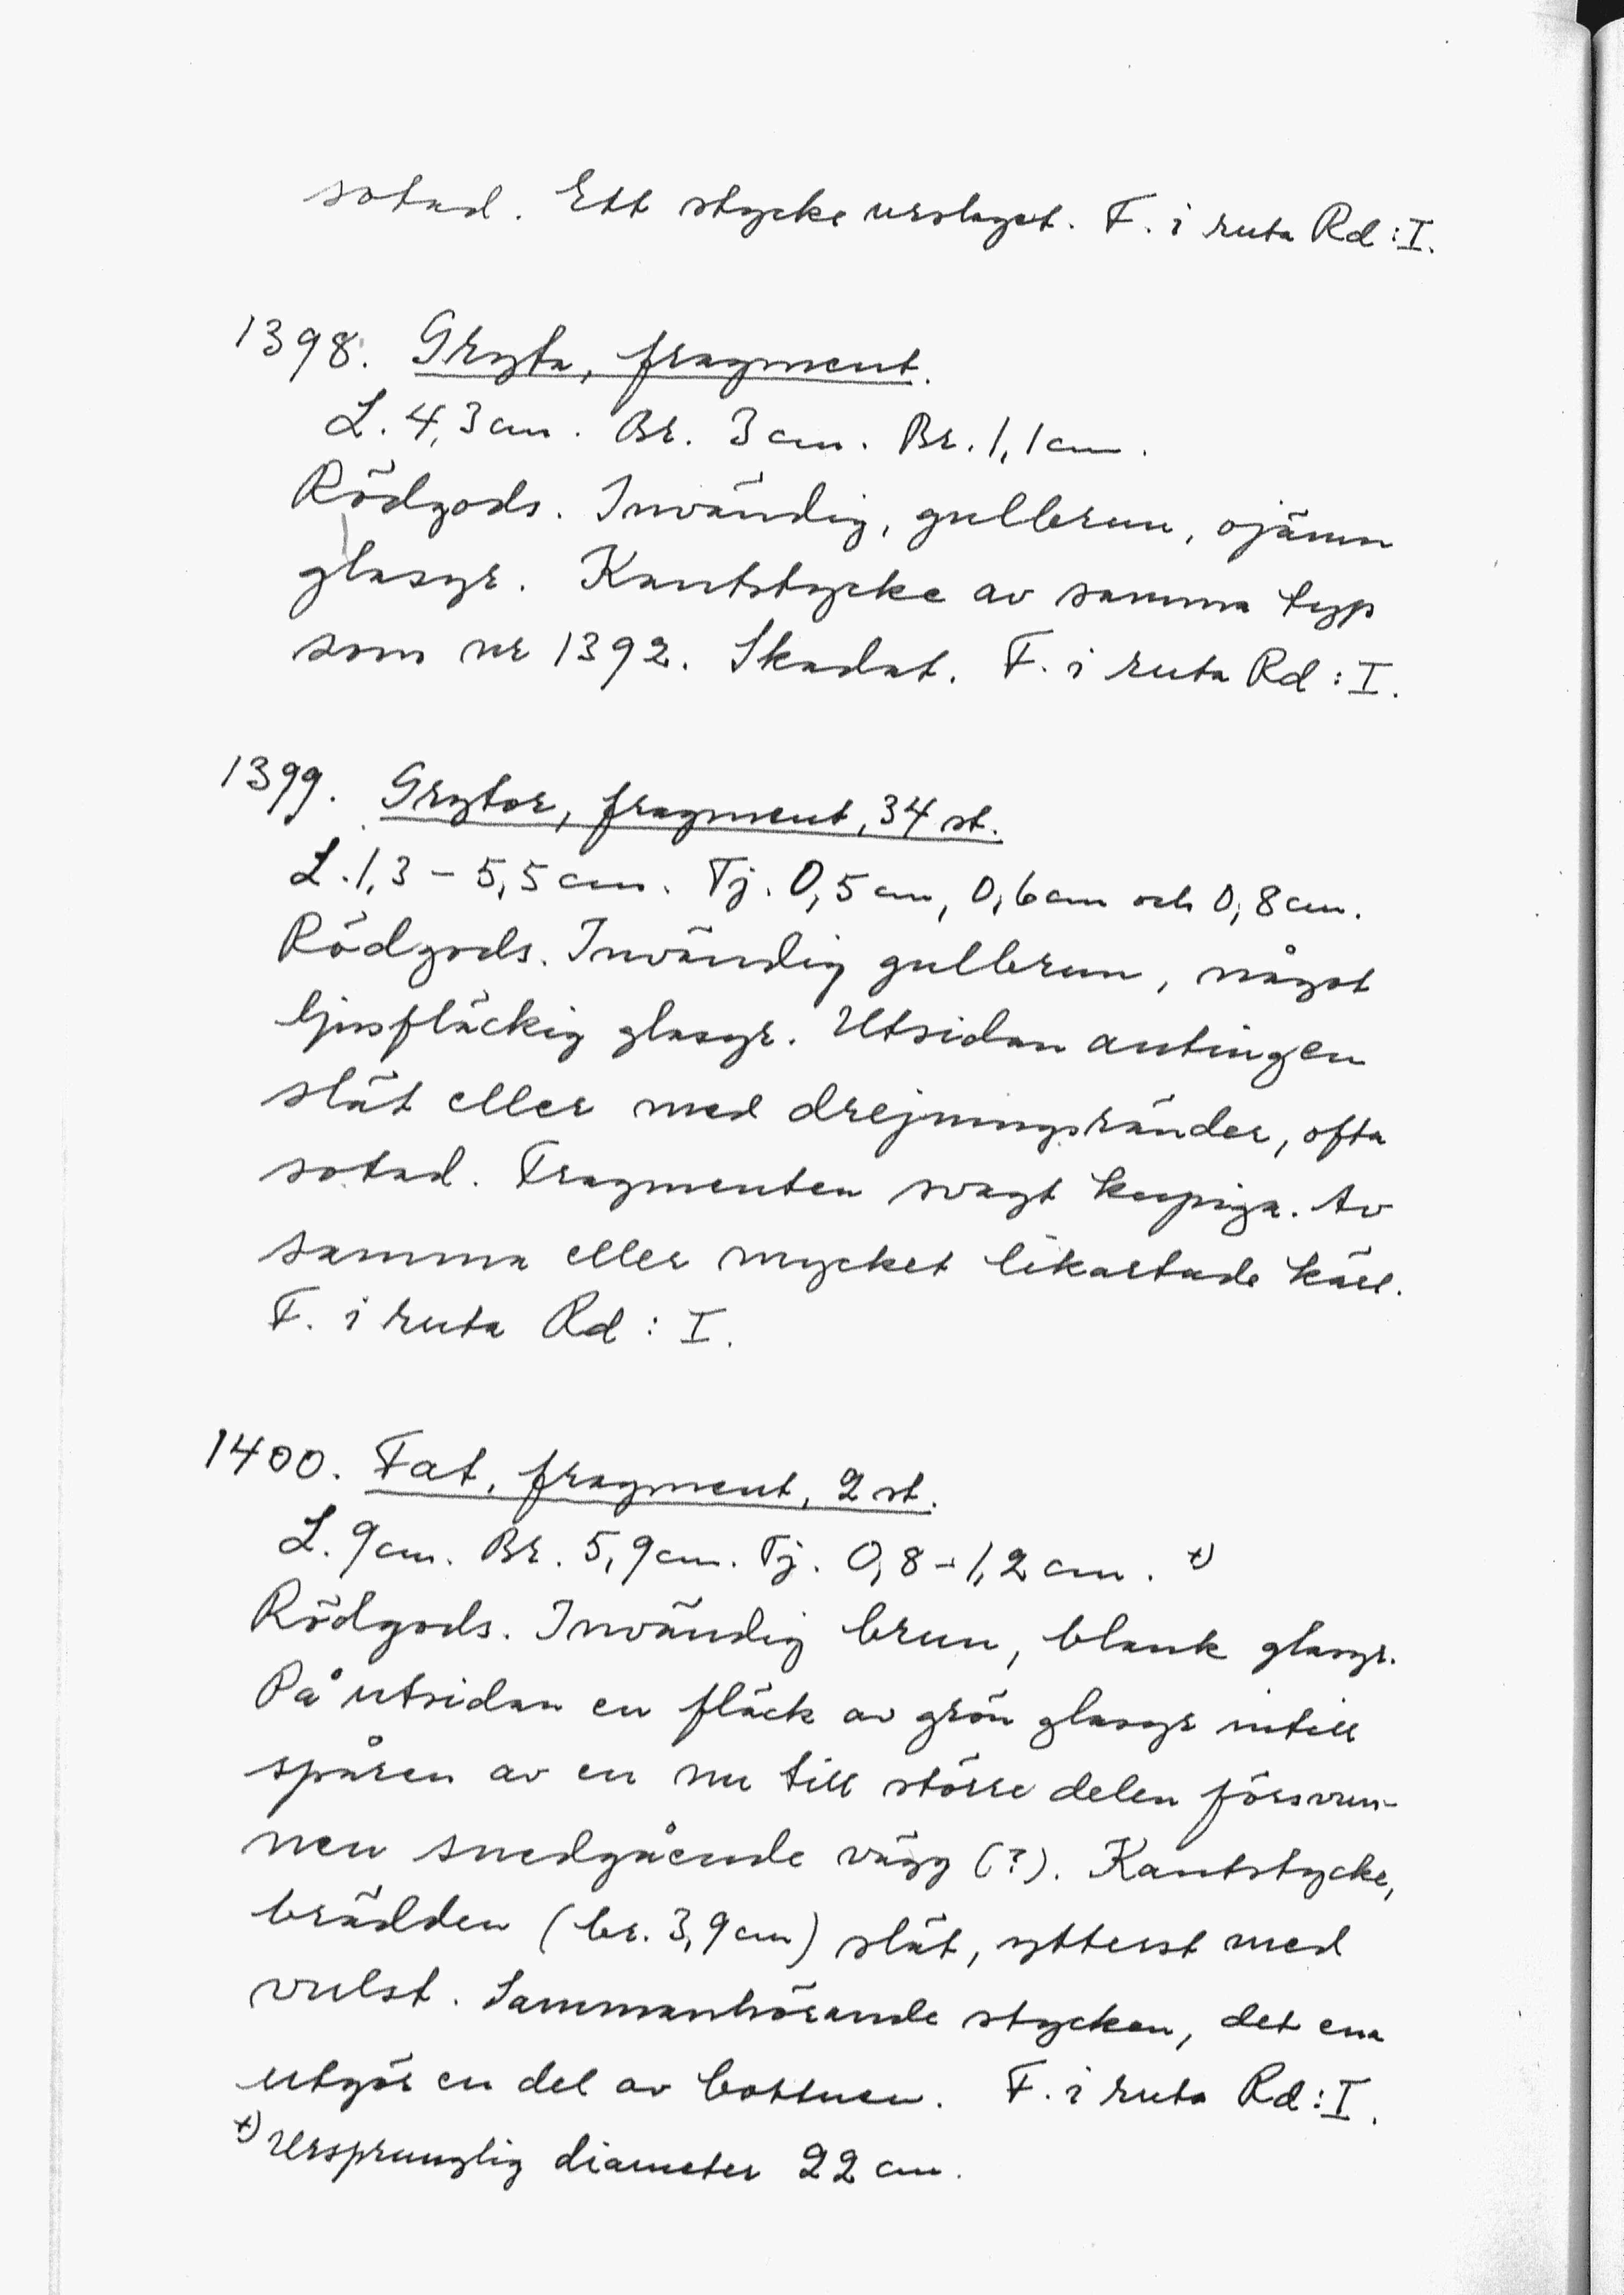 sotad. Ett stycke urslaget. F. i ruta Rd : I.
1398. Gryta, fragment.
L. 4,3 cm. Br. 3 cm. Br. 1,1 cm.
Rödgods. Invändig, gulbrun, ojämn
glasyr. Kantstycke av samma typ
som nr 1392. Skadat. F. i ruta Rd : I.
1399. Grytor, fragment, 34 st.
L. 1,3 – 5,5 cm. Tj. 0,5 cm, 0,6 cm och 0,8 cm.
Rödgods. Invändig gulbrun, något
ljusfläckig glasyr. Utsidan antingen
slät eller med drejningsränder, ofta
sotad. Fragmenten svagt kupiga. Av
samma eller mycket likartade kärl.
F. i ruta Rd : I.
1400. Fat, fragment, 2 st.
L. 9 cm. Br. 5,9 cm. Tj. 0,8 – 1,2 cm. +)
Rödgods. Invändig brun, blank glasyr.
På utsidan en fläck av grön glasyr intill
spåren av en nu till större delen försvun-
nen snedgående vägg (?). Kantstycke,
brädden (br. 3,9 cm) slät, ytterst med
vulst. Sammanhörande stycken, det ena
utgör en del av bottnen. F. i ruta Rd : I.
+) Ursprunglig diameter 22 cm.